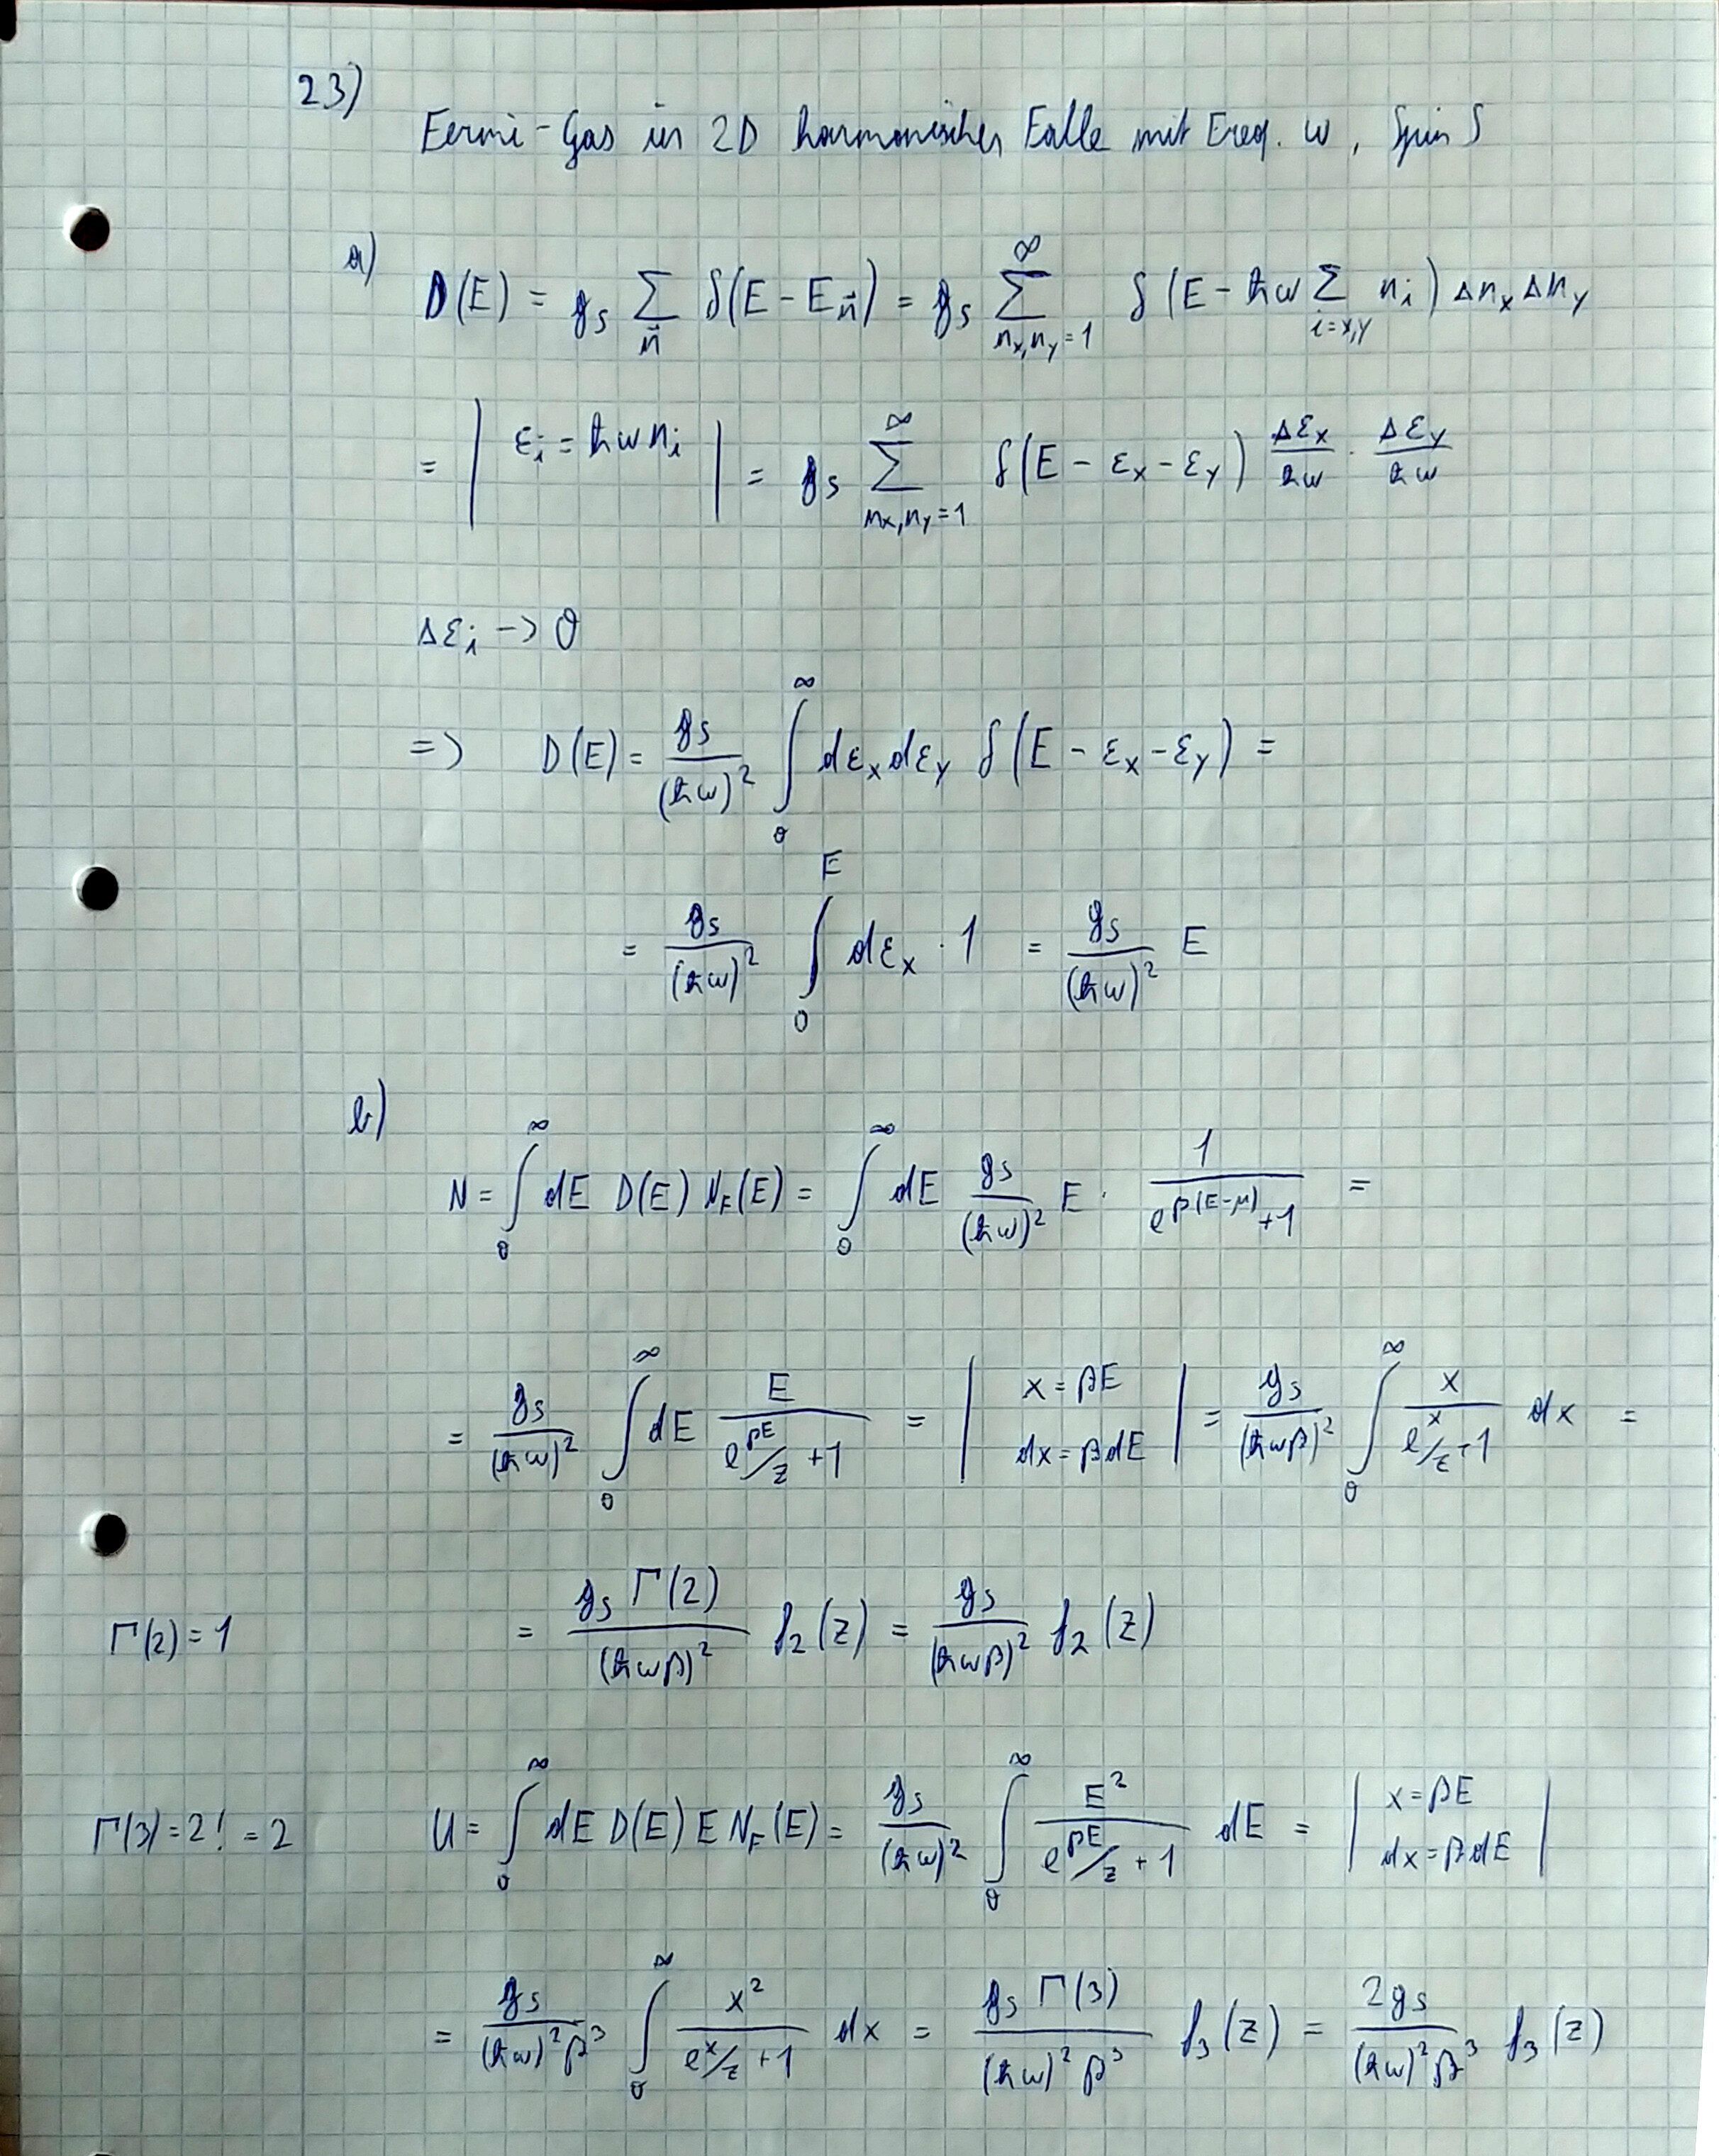 23)
Fermi-Gas in 2D harmonischer Falle mit Freq. ω, Spin S
a)
D(E) = g_s Σ_{n⃗} δ(E - E_{n⃗}) = g_s Σ_{n_x,n_y=1}^{∞} δ(E - ħω Σ_{i=x,y} n_i) Δn_x Δn_y
= | ε_i = ħωn_i | = g_s Σ_{n_x,n_y=1}^{∞} δ(E - ε_x - ε_y) Δε_x/ħω · Δε_y/ħω
Δε_i -> 0
=> D(E) = g_s/(ħω)² ∫_0^∞ dε_x dε_y δ(E - ε_x - ε_y) =
= g_s/(ħω)² ∫_0^E dε_x · 1 = g_s/(ħω)² E
b)
N = ∫_0^∞ dE D(E) N_F(E) = ∫_0^∞ dE g_s/(ħω)² E · 1/(e^{β(E-μ)}+1) =
= g_s/(ħω)² ∫_0^∞ dE E/(e^{βE}/z +1) = | x = βE dx = βdE | = g_s/(ħωβ)² ∫_0^∞ x/(e^x/z +1) dx =
Γ(2) = 1
= g_s Γ(2)/(ħωβ)² f_2(z) = g_s/(ħωβ)² f_2(z)
Γ(3) = 2! = 2
U = ∫_0^∞ dE D(E) E N_F(E) = g_s/(ħω)² ∫_0^∞ E²/(e^{βE}/z +1) dE = | x = βE dx = βdE |
= g_s/((ħω)²β³) ∫_0^∞ x²/(e^x/z +1) dx = g_s Γ(3)/((ħω)²β³) f_3(z) = 2g_s/((ħω)²β³) f_3(z)